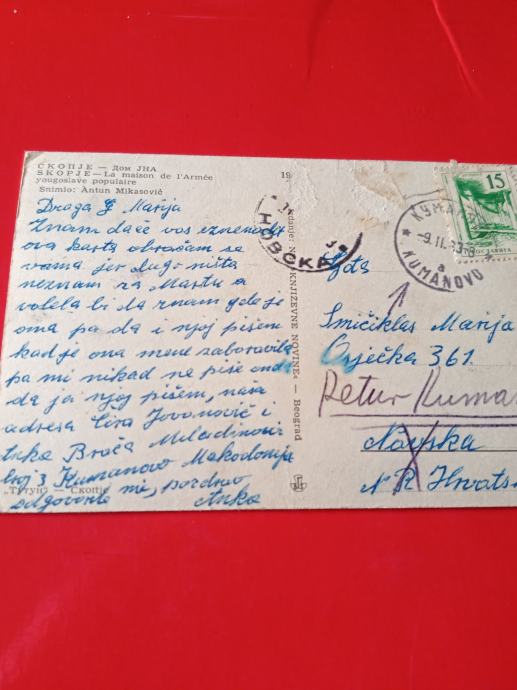 СКОПЈЕ — Дом ЈНА
SKOPJE — La maison de l'Armée
yougoslave populaire
Snimio: Antun Mikasović
19
Draga G Marija
Znam da će vos iznenodit
ova karta obraćam se
vama jer dugo ništa
neznam za Martu a
volela bi da znam gde je
ona pa da i njoj pišem
kad je ona mene zaboravila
pa mi nikad ne piše onda
da ja njoj pišem, naša
adresa Ćira Jovanović i
Anka Braća Miladinovi
broj 3 Kumanovo Makedonija
„Тутун“ — Скопје
odgovorite mi, pozdrav
Anka
KNJIŽEVNE NOVINE« — Beograd
НОВСКА
15
КУМАНОВО
-9.11.63-8
a
KUMANOVO
Gđa
Smičiklas Marija
Osječka 361
Retur Kuma
Novska
N R Hrvats